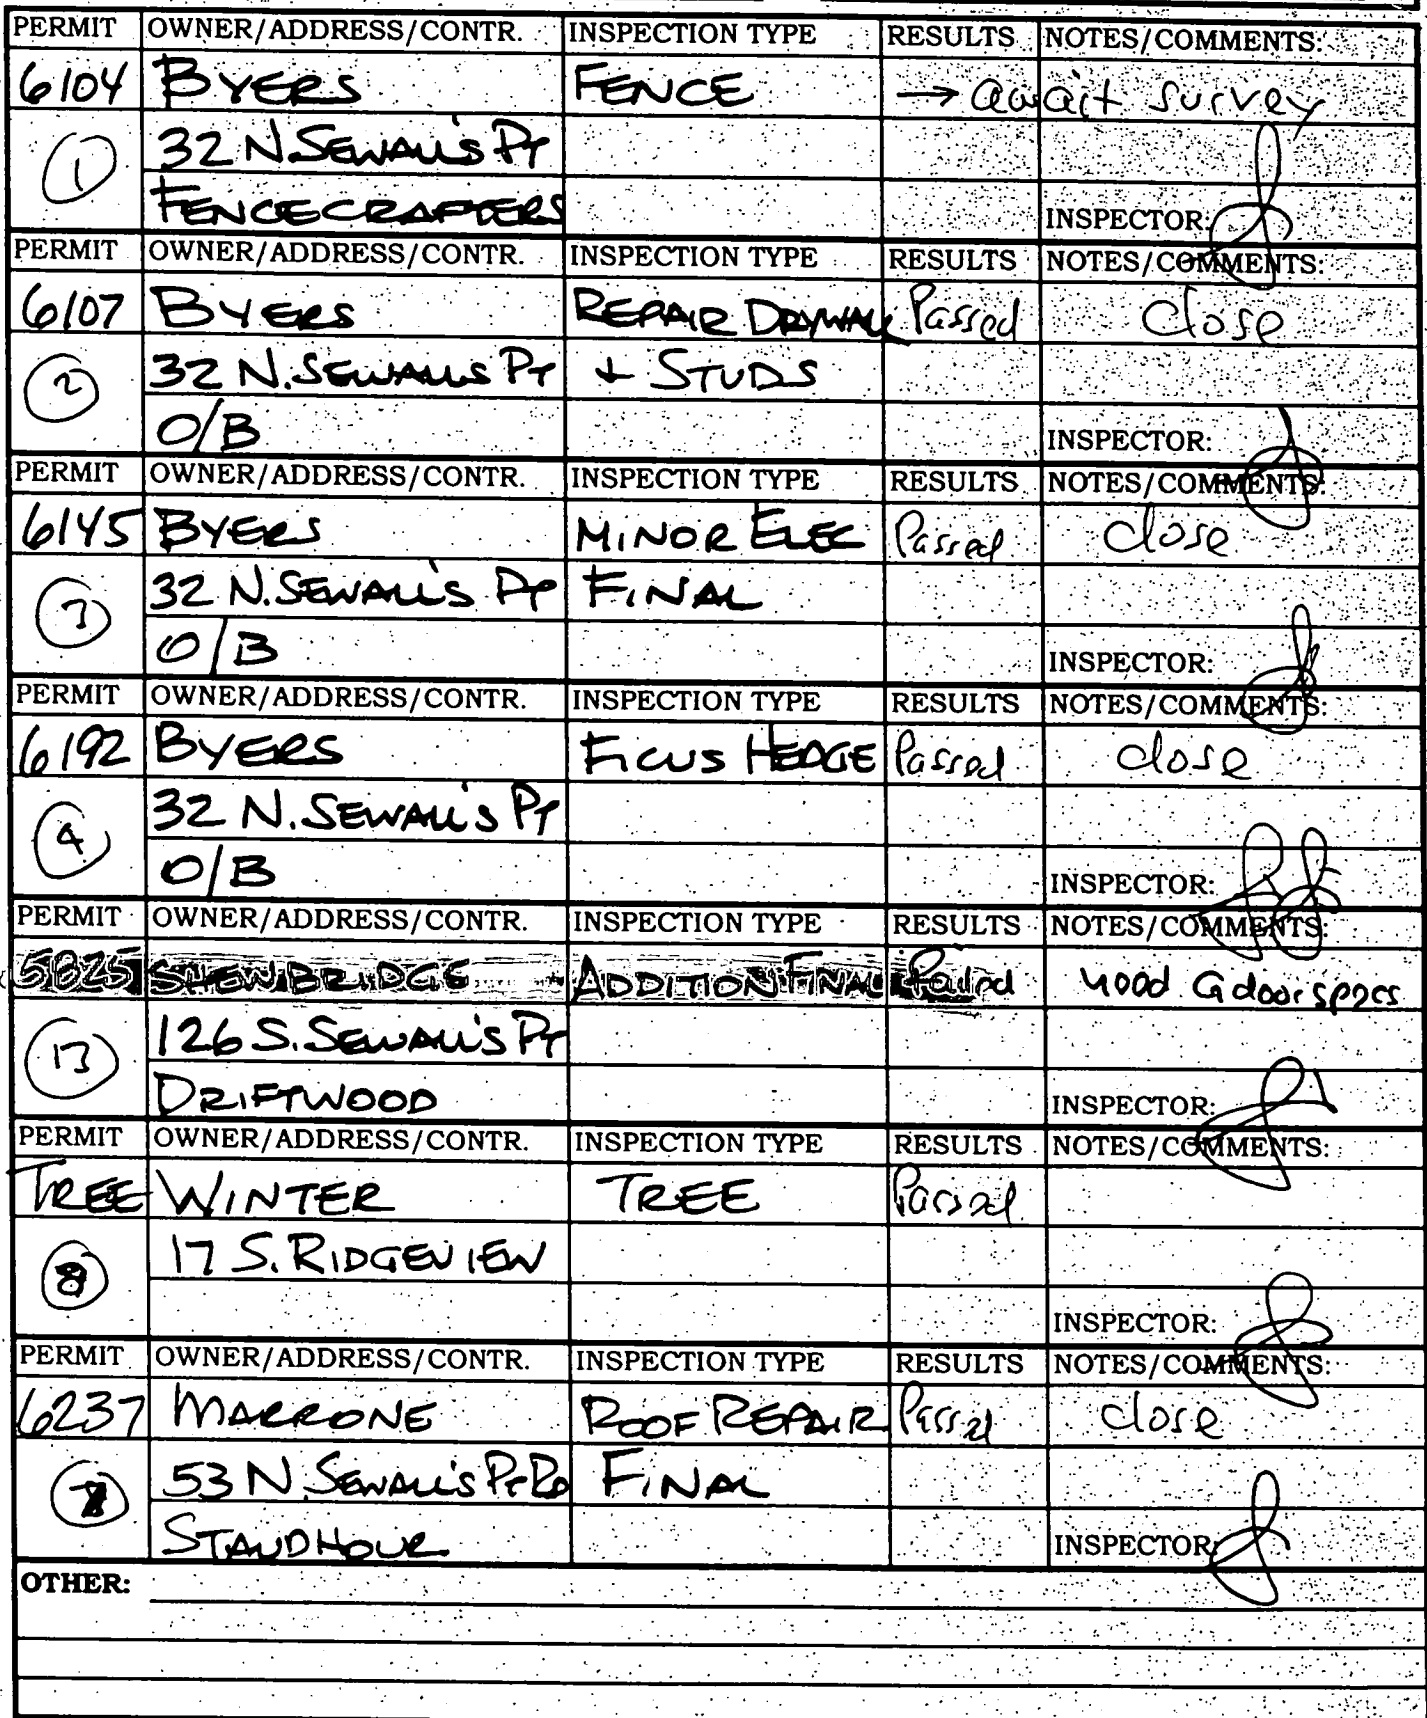 PERMIT OWNER/ADDRESS/CONTR. INSPECTION TYPE RESULTS NOTES/COMMENTS:
6104 BYERS FENCE → await survey
1 32 N. SEWALL'S PT
FENCECRAFTERS INSPECTOR:
PERMIT OWNER/ADDRESS/CONTR. INSPECTION TYPE RESULTS NOTES/COMMENTS:
6107 BYERS REPAIR DRYWALL Passed close
2 32 N. SEWALLS PT + STUDS
O/B INSPECTOR:
PERMIT OWNER/ADDRESS/CONTR. INSPECTION TYPE RESULTS NOTES/COMMENTS:
6145 BYERS MINOR ELEC Passed close
3 32 N. SEWALL'S PT FINAL
O/B INSPECTOR:
PERMIT OWNER/ADDRESS/CONTR. INSPECTION TYPE RESULTS NOTES/COMMENTS:
6192 BYERS FICUS HEDGE Passed close
4 32 N. SEWALL'S PT
O/B INSPECTOR:
PERMIT OWNER/ADDRESS/CONTR. INSPECTION TYPE RESULTS NOTES/COMMENTS:
5825 SHEWBRIDGE ADDITION FINAL Failed need G door specs
13 126 S. SEWALL'S PT
DRIFTWOOD INSPECTOR:
PERMIT OWNER/ADDRESS/CONTR. INSPECTION TYPE RESULTS NOTES/COMMENTS:
TREE WINTER TREE Passed
8 17 S. RIDGEVIEW
INSPECTOR:
PERMIT OWNER/ADDRESS/CONTR. INSPECTION TYPE RESULTS NOTES/COMMENTS:
6237 MARRONE ROOF REPAIR Passed close
53 N. SEWALL'S PT RD FINAL
INSPECTOR:
OTHER: